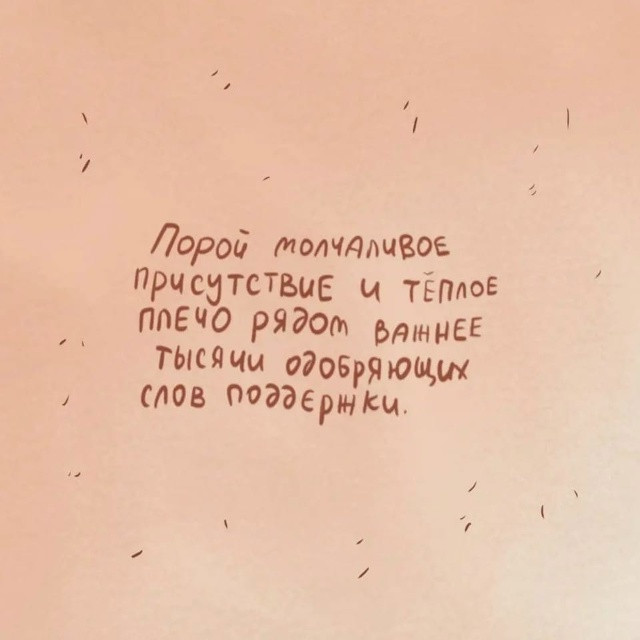 Порой молчаливое
присутствие и тёплое
плечо рядом важнее
тысячи одобряющих
слов поддержки.